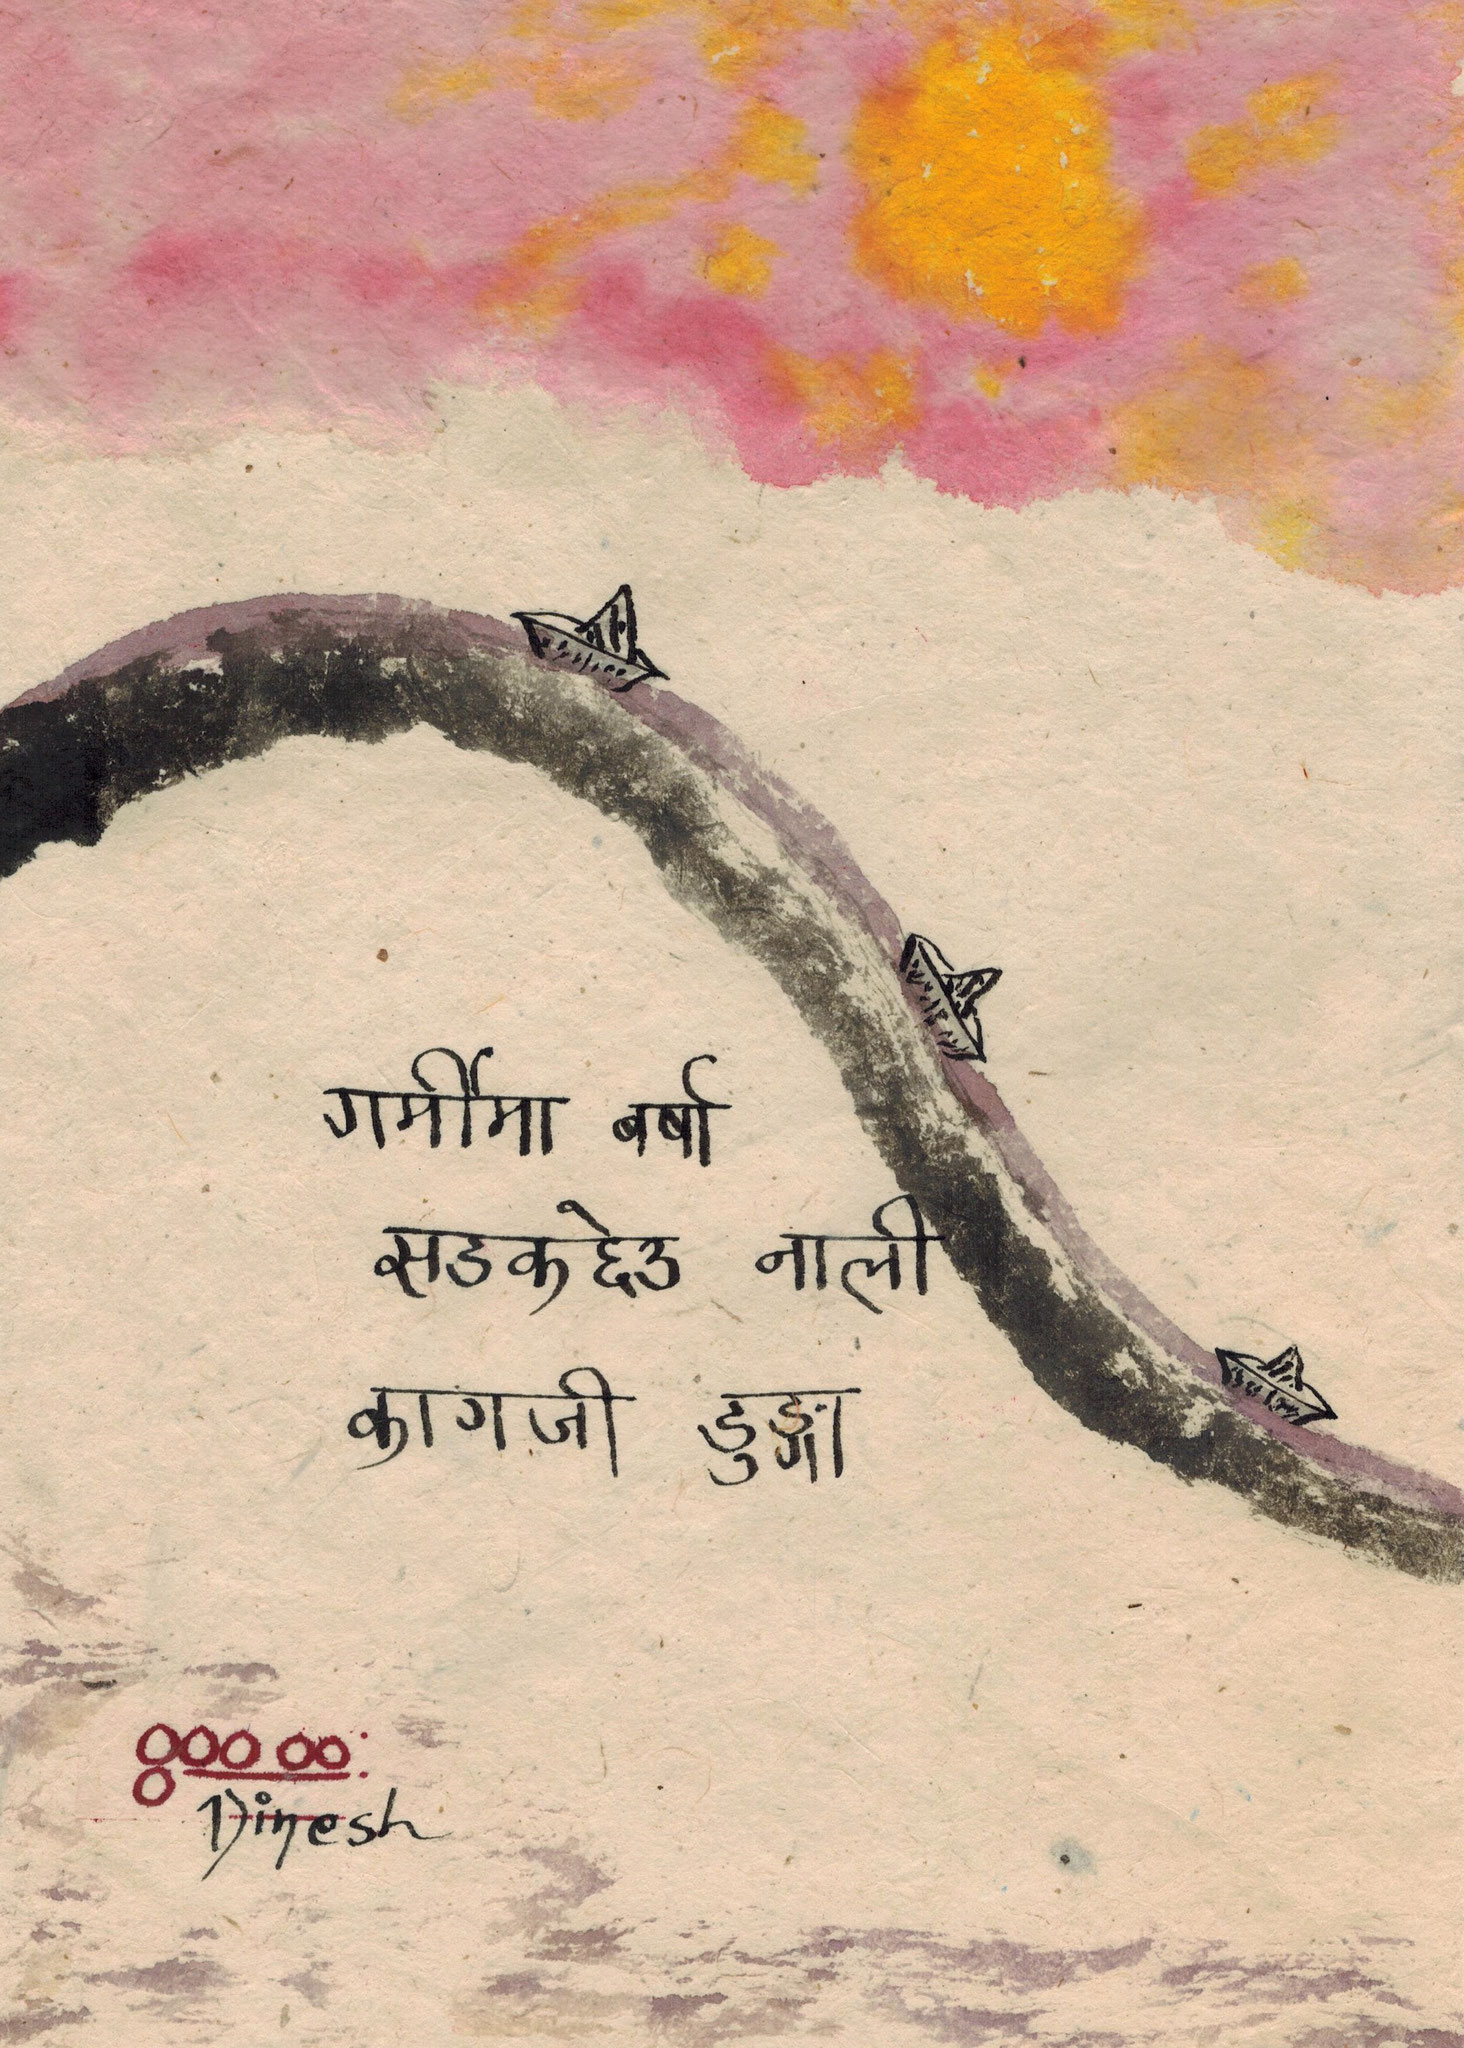 गर्मीमा बर्षा
सडकछेउ नाली
कागजी डुङ्गा
Dinesh